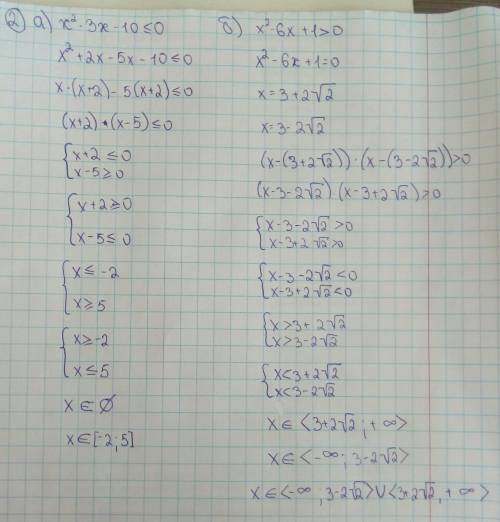 ② а) x²-3x-10≤0
x²+2x-5x-10≤0
x·(x+2)-5(x+2)≤0
(x+2)·(x-5)≤0
{x+2≤0
x-5≥0
{x+2≥0
x-5≤0
{x≤-2
x≥5
{x≥-2
x≤5
x∈∅
x∈[-2;5]
б) x²-6x+1>0
x²-6x+1=0
x=3+2√2
x=3-2√2
(x-(3+2√2))·(x-(3-2√2))>0
(x-3-2√2)(x-3+2√2)>0
{x-3-2√2>0
x-3+2√2>0
{x-3-2√2<0
x-3+2√2<0
{x>3+2√2
x>3-2√2
{x<3+2√2
x<3-2√2
x∈⟨3+2√2;+∞⟩
x∈⟨-∞;3-2√2⟩
x∈⟨-∞;3-2√2⟩∪⟨3+2√2,+∞⟩